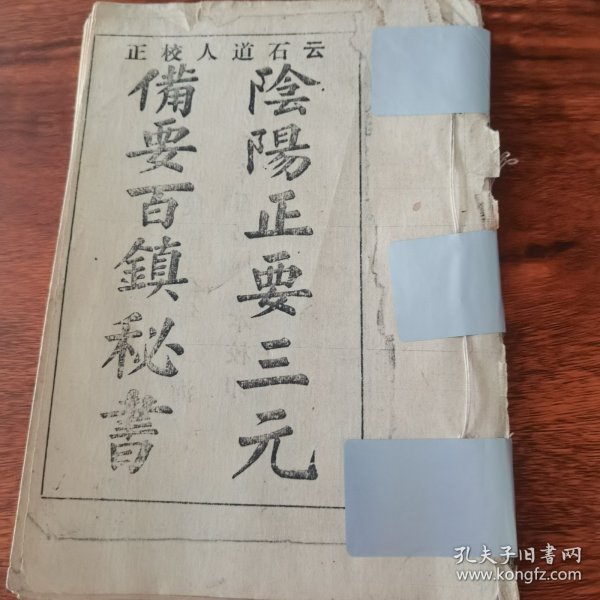 云石道人校正
陰陽正要三元
備要百鎮秘書
孔夫子旧书网
www.kongfz.com